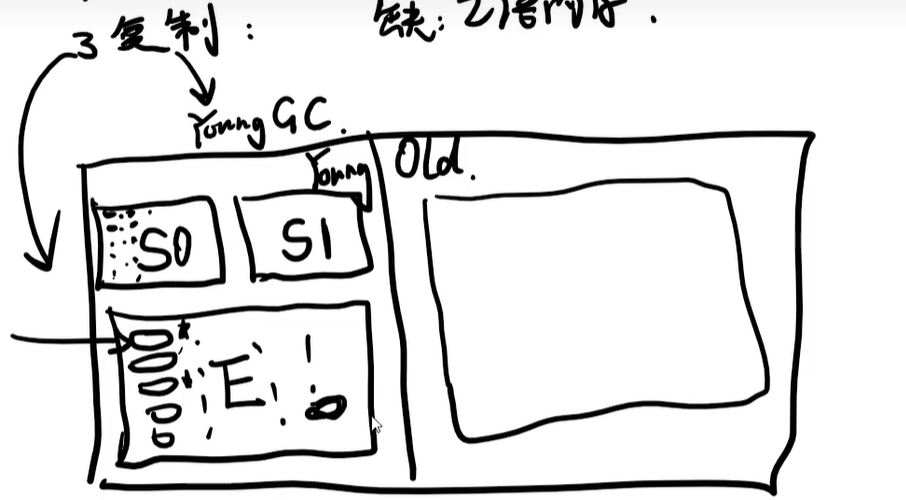 3 复制: 缺: 2倍内存.
Young GC.
Young Old.
S0 S1
E